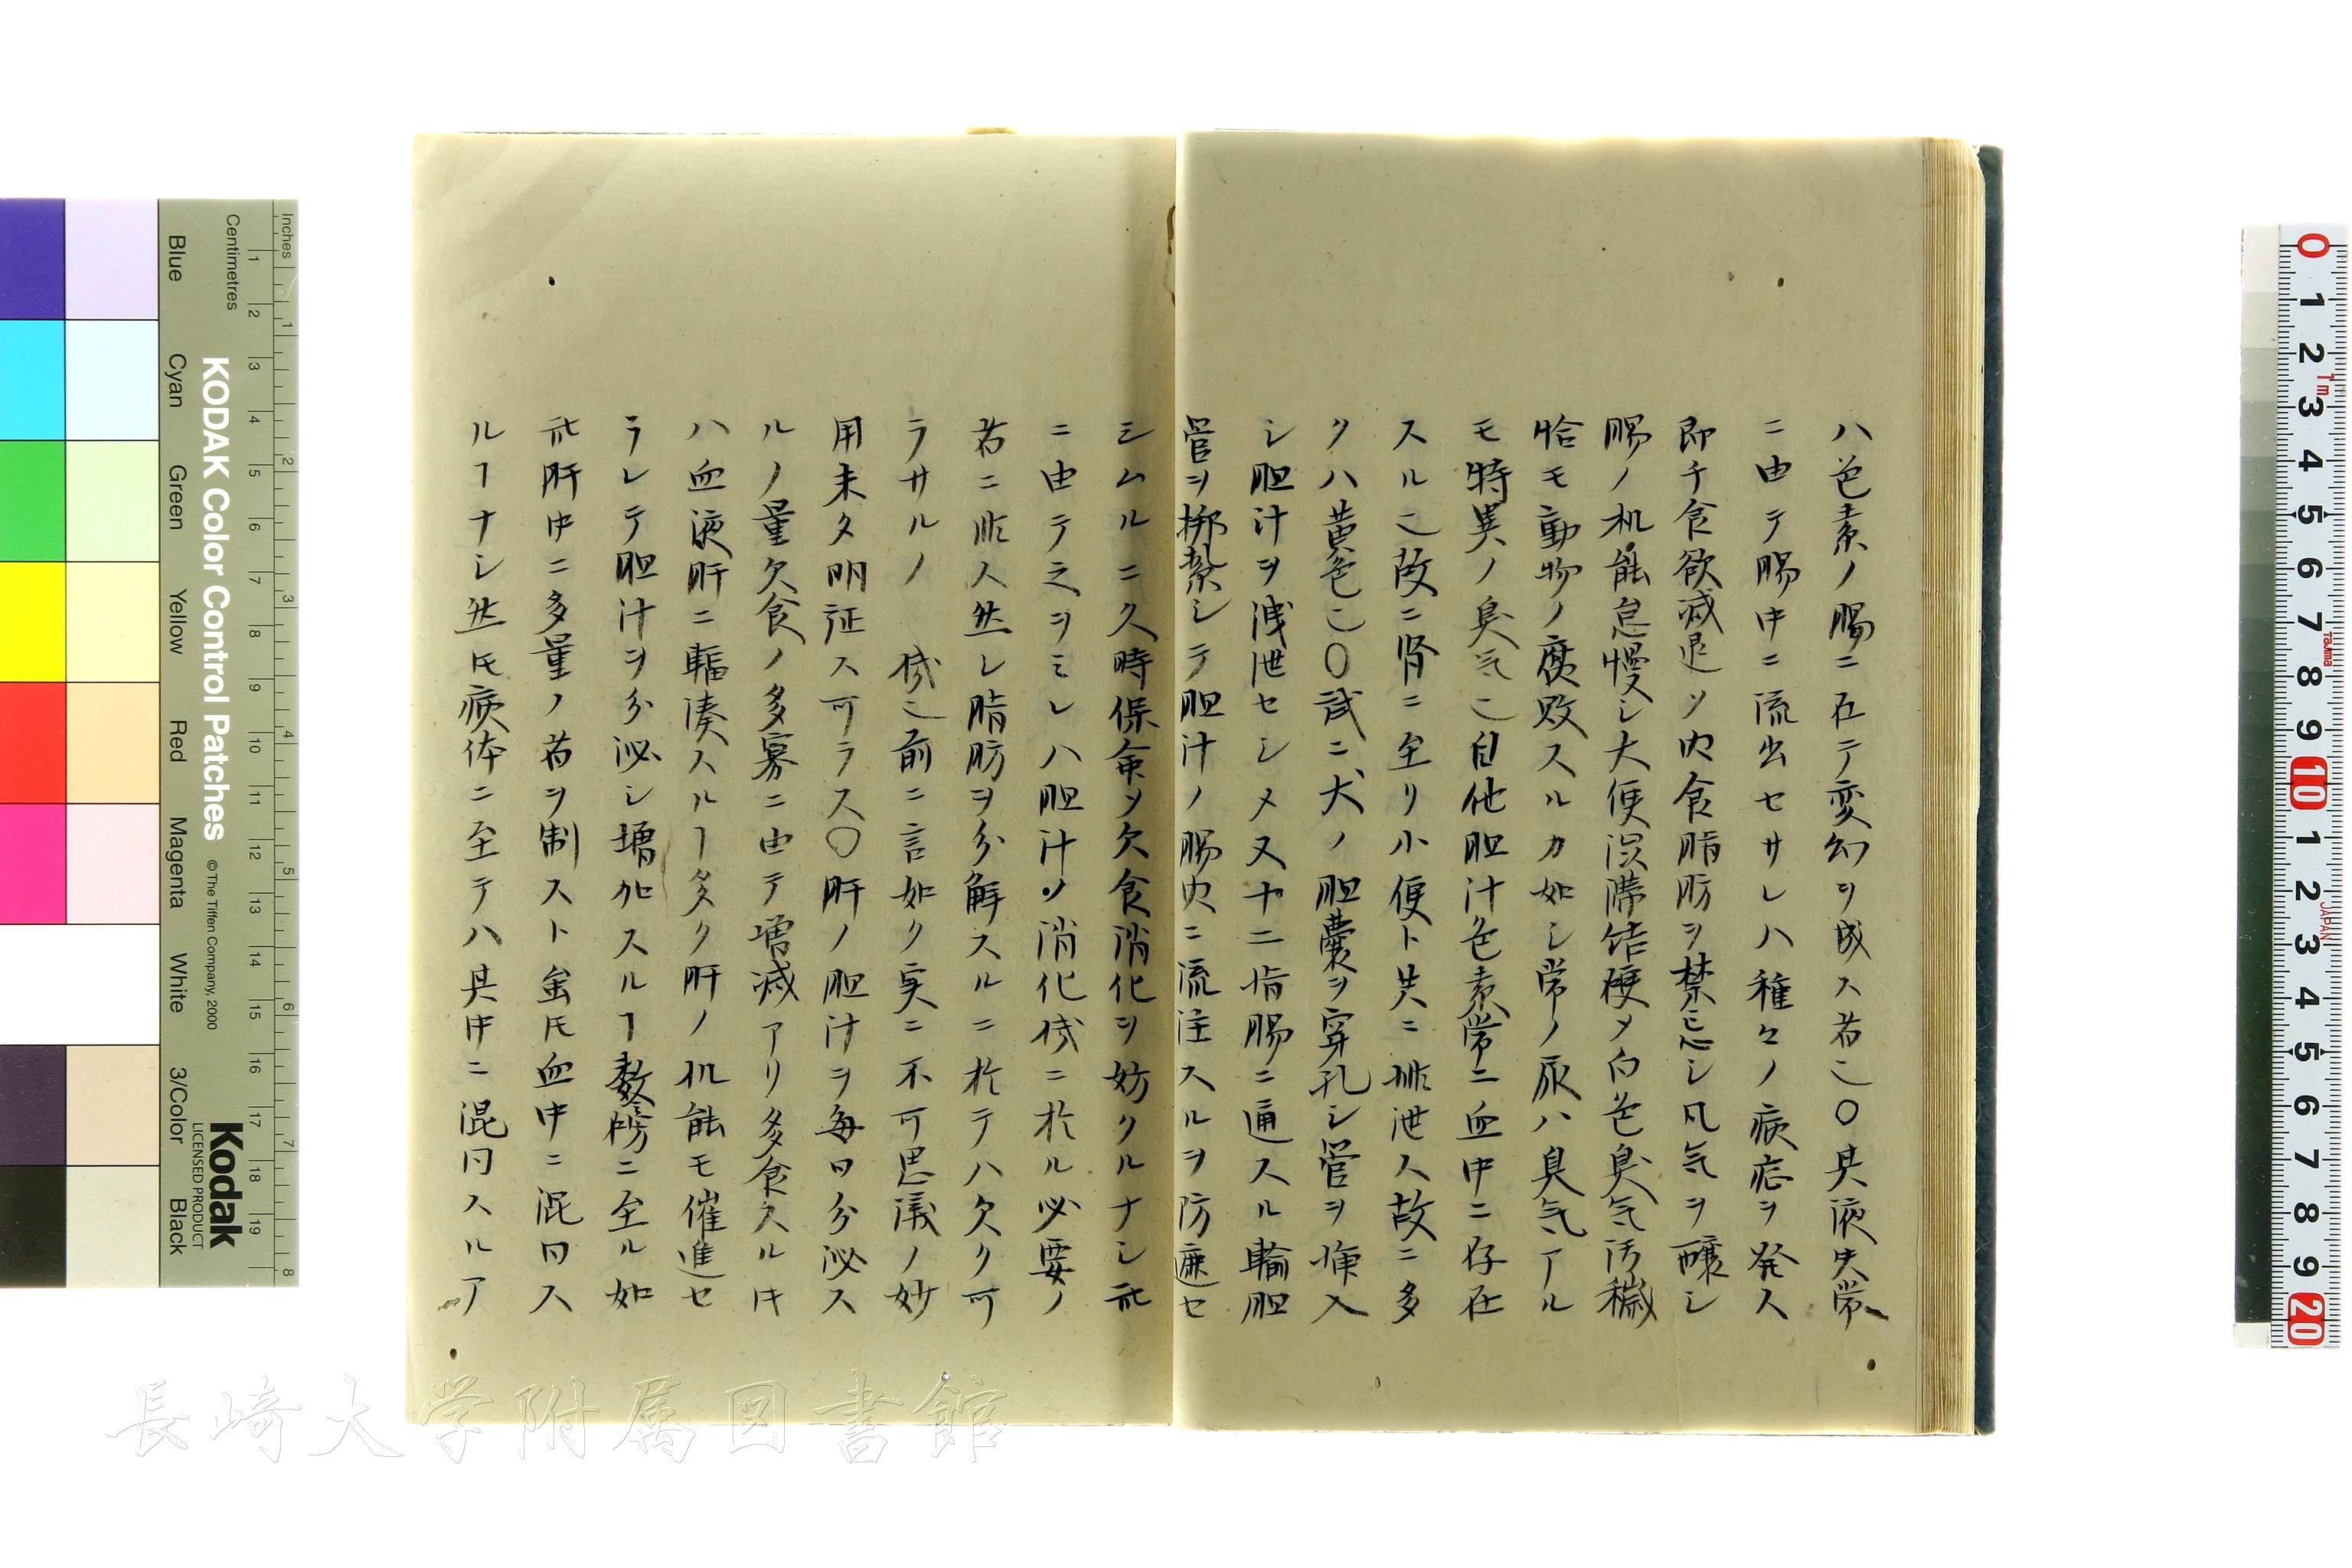 ハ色素ノ腸ニ在テ変幻ヲ成ス者也〇其液失常
ニ由テ腸中ニ流出セサレハ種々ノ病症ヲ発ス
即チ食欲減退ノ肉食脂肪ヲ禁忌シ風気ヲ醸シ
腸ノ机能怠慢シ大便渋滞結硬メ白色臭気汚穢
恰モ動物ノ腐敗スルカ如シ常ノ尿ハ臭気アル
モ特異ノ臭気也自他胆汁色素常ニ血中ニ存在
スル也故ニ腎ニ至リ小便ト共ニ排泄ス故ニ多
クハ黄色也〇試ニ犬ノ胆嚢ヲ穿孔シ管ヲ挿入
シ胆汁ヲ洩泄セシメ又十二指腸ニ通スル輸胆
管ヲ挷紮シテ胆汁ノ腸内ニ流注スルヲ防遮セ
シムルニ久時保命メ欠食消化ヲ妨クルナシ此
ニ由テ之ヲミレハ胆汁ノ消化機ニ於ル必要ノ
者ニ非ス然レ脂肪ヲ分解スルニ於テハ欠ク可
ラサルノ機也前ニ言如ク実ニ不可思議ノ妙
用未タ明証ス可ラス〇肝ノ胆汁ヲ毎日分泌ス
ルノ量欠食ノ多寡ニ由テ増減アリ多食スル𪜈
ハ血液肝ニ輻湊スルヿ多ク肝ノ机能モ催進セ
ラレテ胆汁ヲ分泌シ増加スルヿ数倍ニ至ル如
此肝中ニ多量ノ者ヲ制スト虽𪜈血中ニ混同ス
ルヿナシ然𪜈病体ニ至テハ其中ニ混同スルア
KODAK Color Control Patches
©The Tiffen Company, 2000
Kodak
LICENSED PRODUCT
Inches
Centimetres
Blue Cyan Green Yellow Red Magenta White 3/Color Black
長崎大学附属図書館